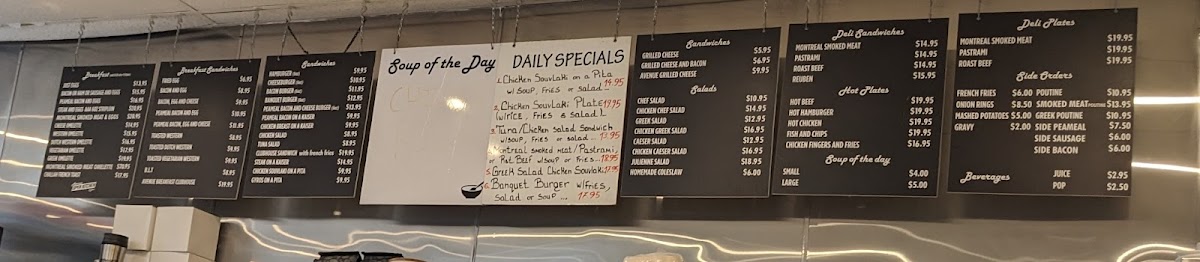 Breakfast
JUST EGGS $13.95
BACON OR HAM OR SAUSAGE AND EGGS $15.95
PEAMEAL BACON AND EGGS $16.95
STEAK AND EGGS
MONTREAL SMOKED MEAT & EGGS
CHEESE OMELETTE
WESTERN OMELETTE
DUTCH WESTERN OMELETTE
VEGETARIAN OMELETTE
GREEK OMELETTE
MONTREAL SMOKED MEAT OMELETTE
CHILIAN FRENCH TOAST
Breakfast Sandwiches
FRIED EGG $6.95
BACON AND EGG
BACON, EGG AND CHEESE
PEAMEAL BACON AND EGG
PEAMEAL BACON, EGG AND CHEESE
TOASTED WESTERN
TOASTED DUTCH WESTERN
TOASTED VEGETARIAN WESTERN
B.L.T
AVENUE BREAKFAST CLUBHOUSE
Sandwiches
HAMBURGER $9.95
CHEESEBURGER $10.95
BACON BURGER $11.95
BANQUET BURGER $12.95
PEAMEAL BACON AND CHEESE BURGER $13.95
PEAMEAL BACON ON A KAISER $9.95
CHICKEN BREAST ON A KAISER $9.95
CHICKEN SALAD $8.95
TUNA SALAD $8.95
CLUBHOUSE SANDWICH with french fries $19.95
STEAK ON A KAISER $14.95
CHICKEN SOUVLAKI ON A PITA $9.95
GYROS ON A PITA $9.95
Soup of the Day
DAILY SPECIALS
1. Chicken Souvlaki on a Pita
w/ Soup, Fries or salad... 14.95
2. Chicken Souvlaki Plate 19.95
(w/rice, Fries & Salad).
3. Tuna/Chicken salad Sandwich
w/soup, Fries or salad... 13.95
Montreal smoked meat/Pastrami,
or Rst Beef w/soup or Fries... 18.95
5. Greek Salad Chicken Souvlaki 17.95
6. Banquet Burger w/Fries,
Salad or Soup... 17.95
Sandwiches
GRILLED CHEESE $5.95
GRILLED CHEESE AND BACON $6.95
AVENUE GRILLED CHEESE $9.95
Salads
CHEF SALAD $10.95
CHICKEN CHEF SALAD $14.95
GREEK SALAD $12.95
CHICKEN GREEK SALAD $16.95
CAESER SALAD $12.95
CHICKEN CAESER SALAD $16.95
JULIENNE SALAD $18.95
HOMEMADE COLESLAW $6.00
Deli Sandwiches
MONTREAL SMOKED MEAT $14.95
PASTRAMI $14.95
ROAST BEEF $14.95
REUBEN $15.95
Hot Plates
HOT BEEF $19.95
HOT HAMBURGER $19.95
HOT CHICKEN $19.95
FISH AND CHIPS $19.95
CHICKEN FINGERS AND FRIES $16.95
Soup of the day
SMALL $4.00
LARGE $5.00
Deli Plates
MONTREAL SMOKED MEAT $19.95
PASTRAMI $19.95
ROAST BEEF $19.95
Side Orders
FRENCH FRIES $6.00 POUTINE $10.95
ONION RINGS $8.50 SMOKED MEAT POUTINE $13.95
MASHED POTATOES $5.00 GREEK POUTINE $10.95
GRAVY $2.00 SIDE PEAMEAL $7.50
SIDE SAUSAGE $6.00
SIDE BACON $6.00
Beverages JUICE $2.95
POP $2.50